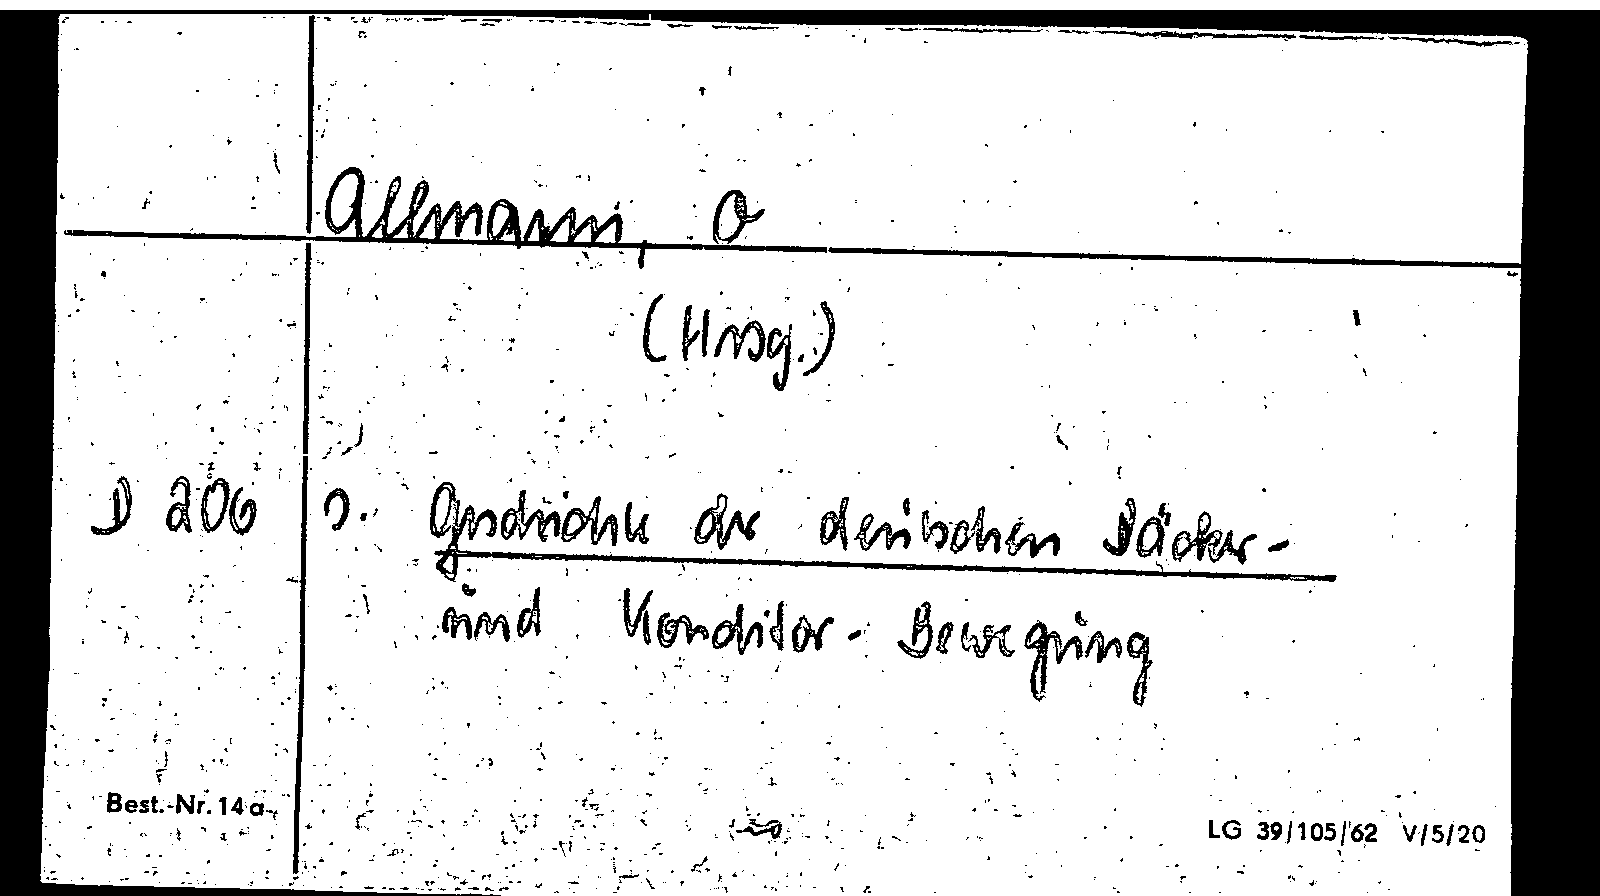 Allmann, O
(Hrsg.)
D 206 s. Geschichte der deutschen Bäcker-
und Konditor-Bewegung
Best.-Nr. 14a
LG 39/105/62 V/5/20